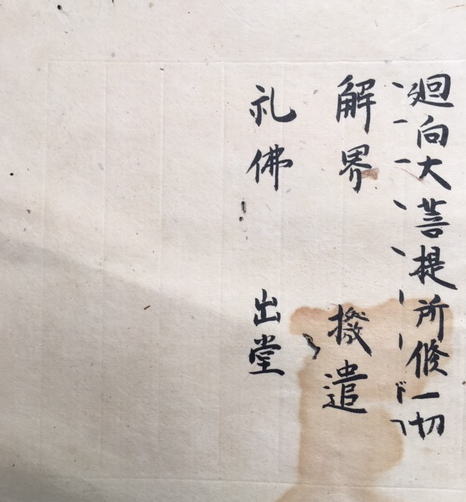 廻向大菩提所修一切
解界 撥遣
礼佛 出堂